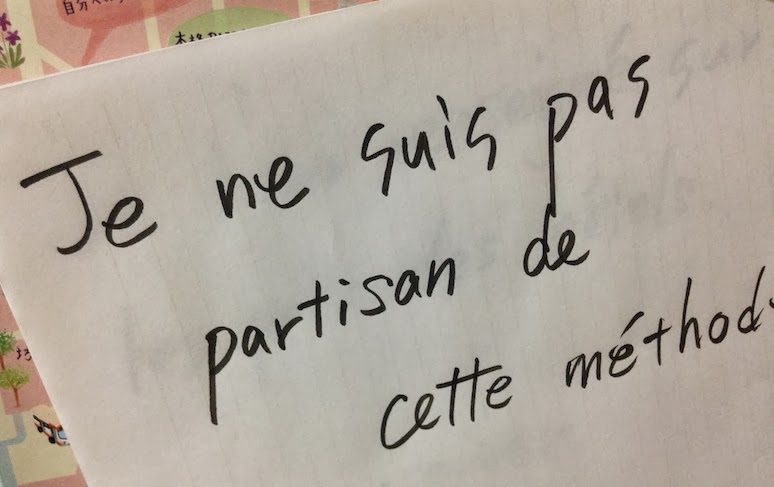 Je ne suis pas
partisan de
cette méthod